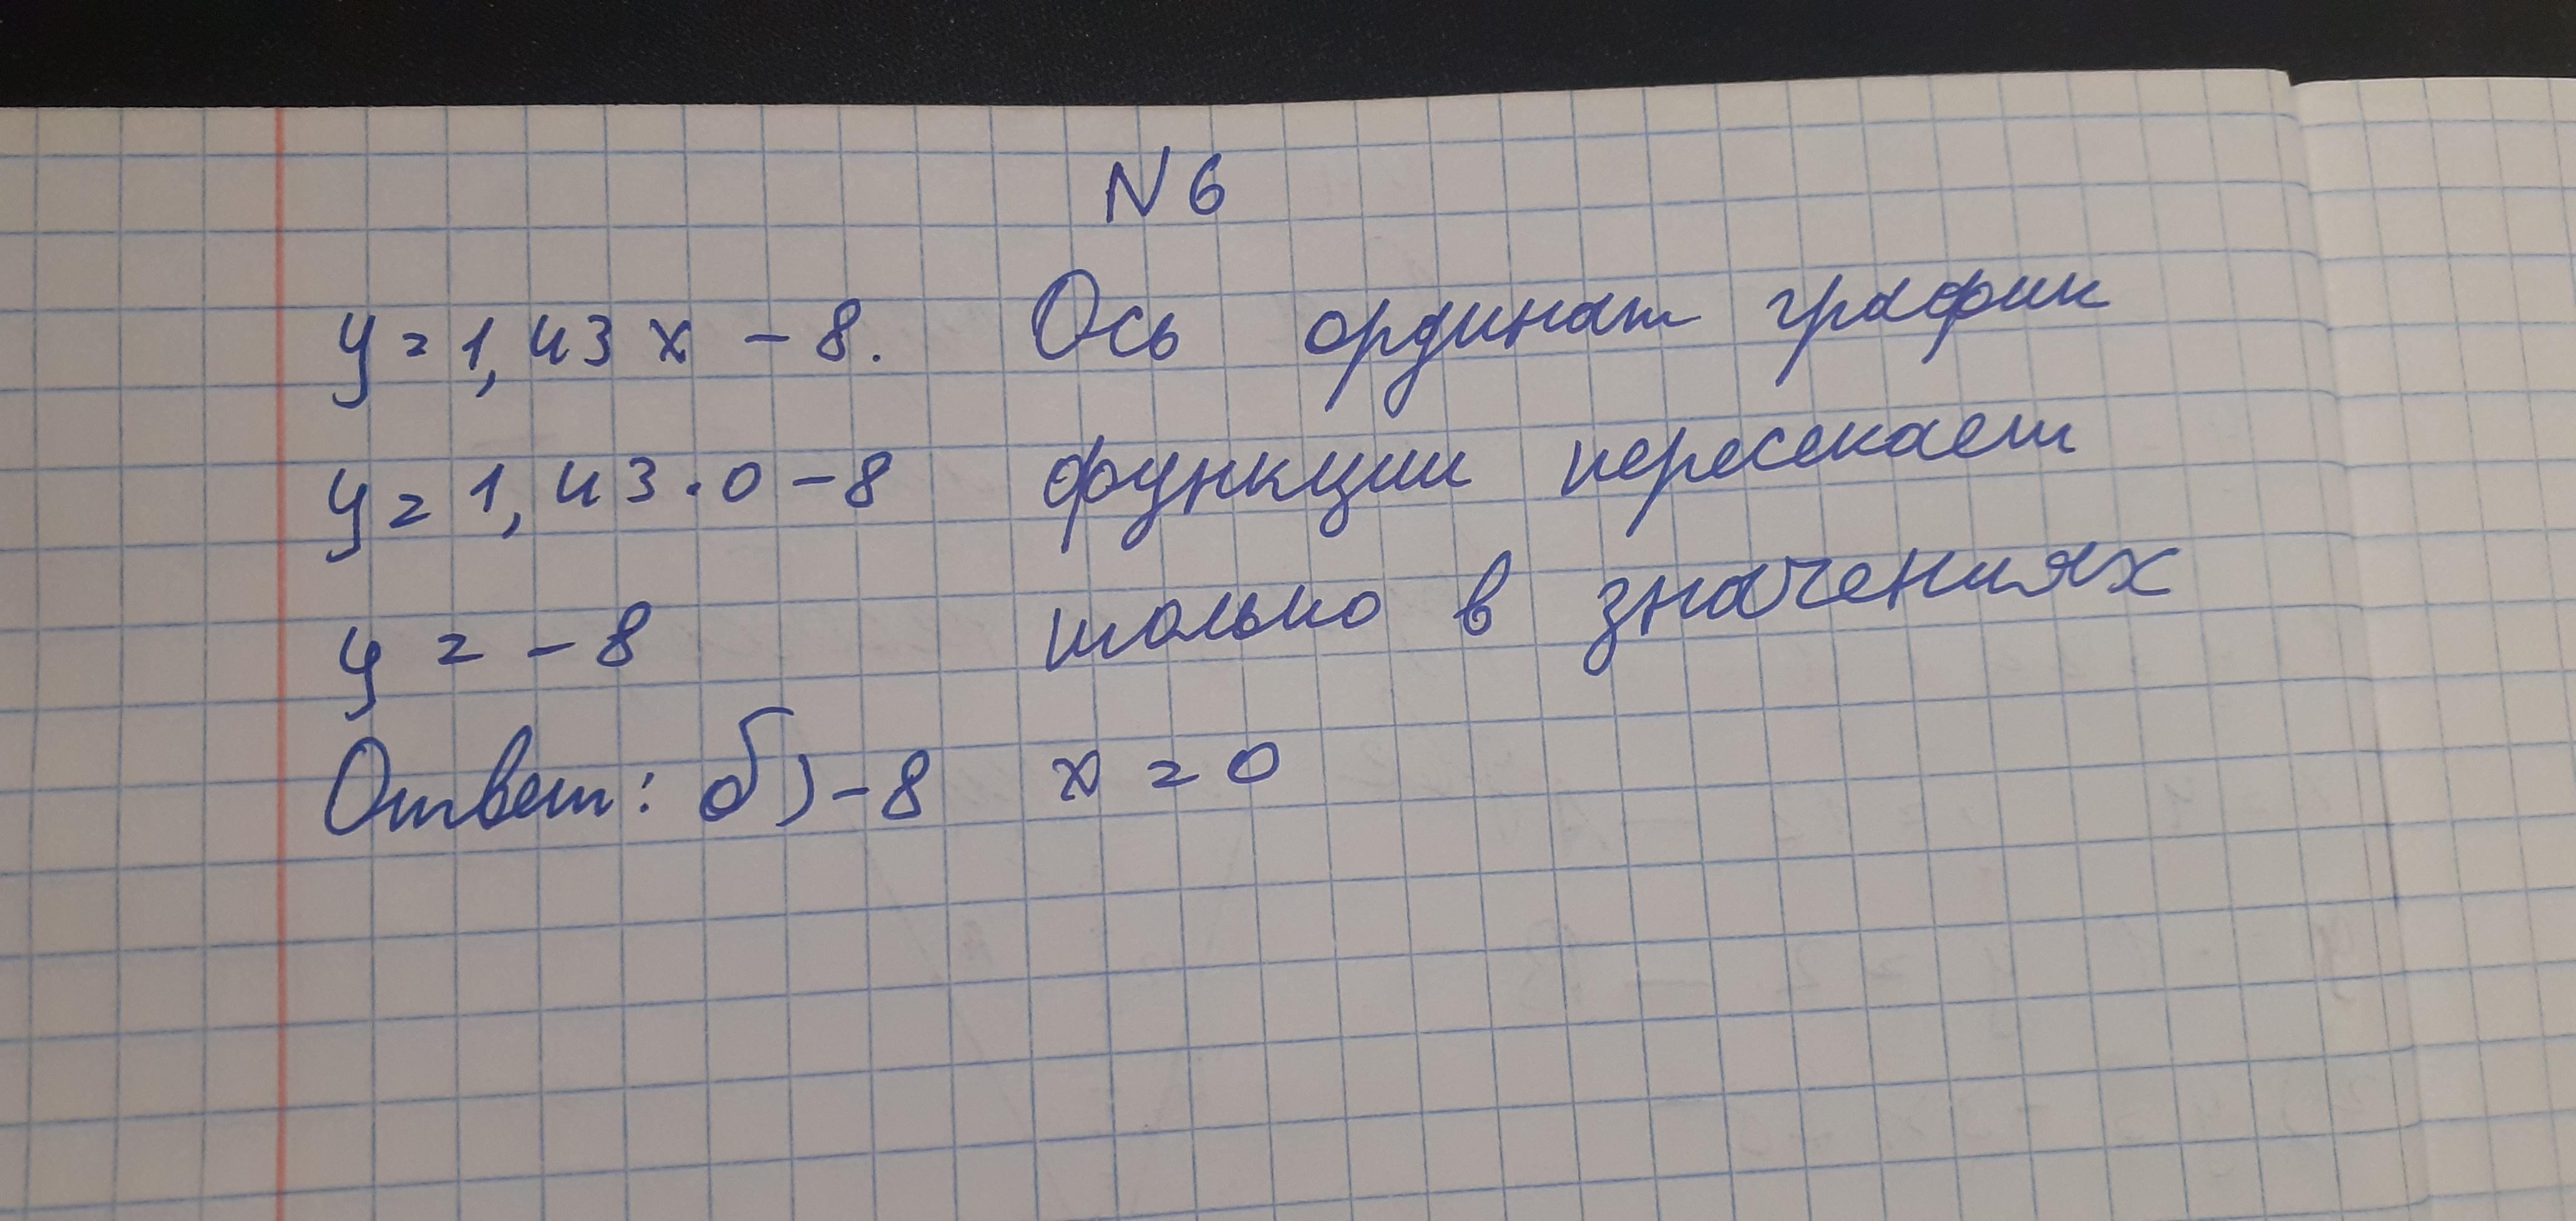 N 6
y = 1,43 x - 8. Ось ординат график
y = 1,43 · 0 - 8 функции пересекает
y = - 8 только в значениях
Ответ: б) - 8 x = 0